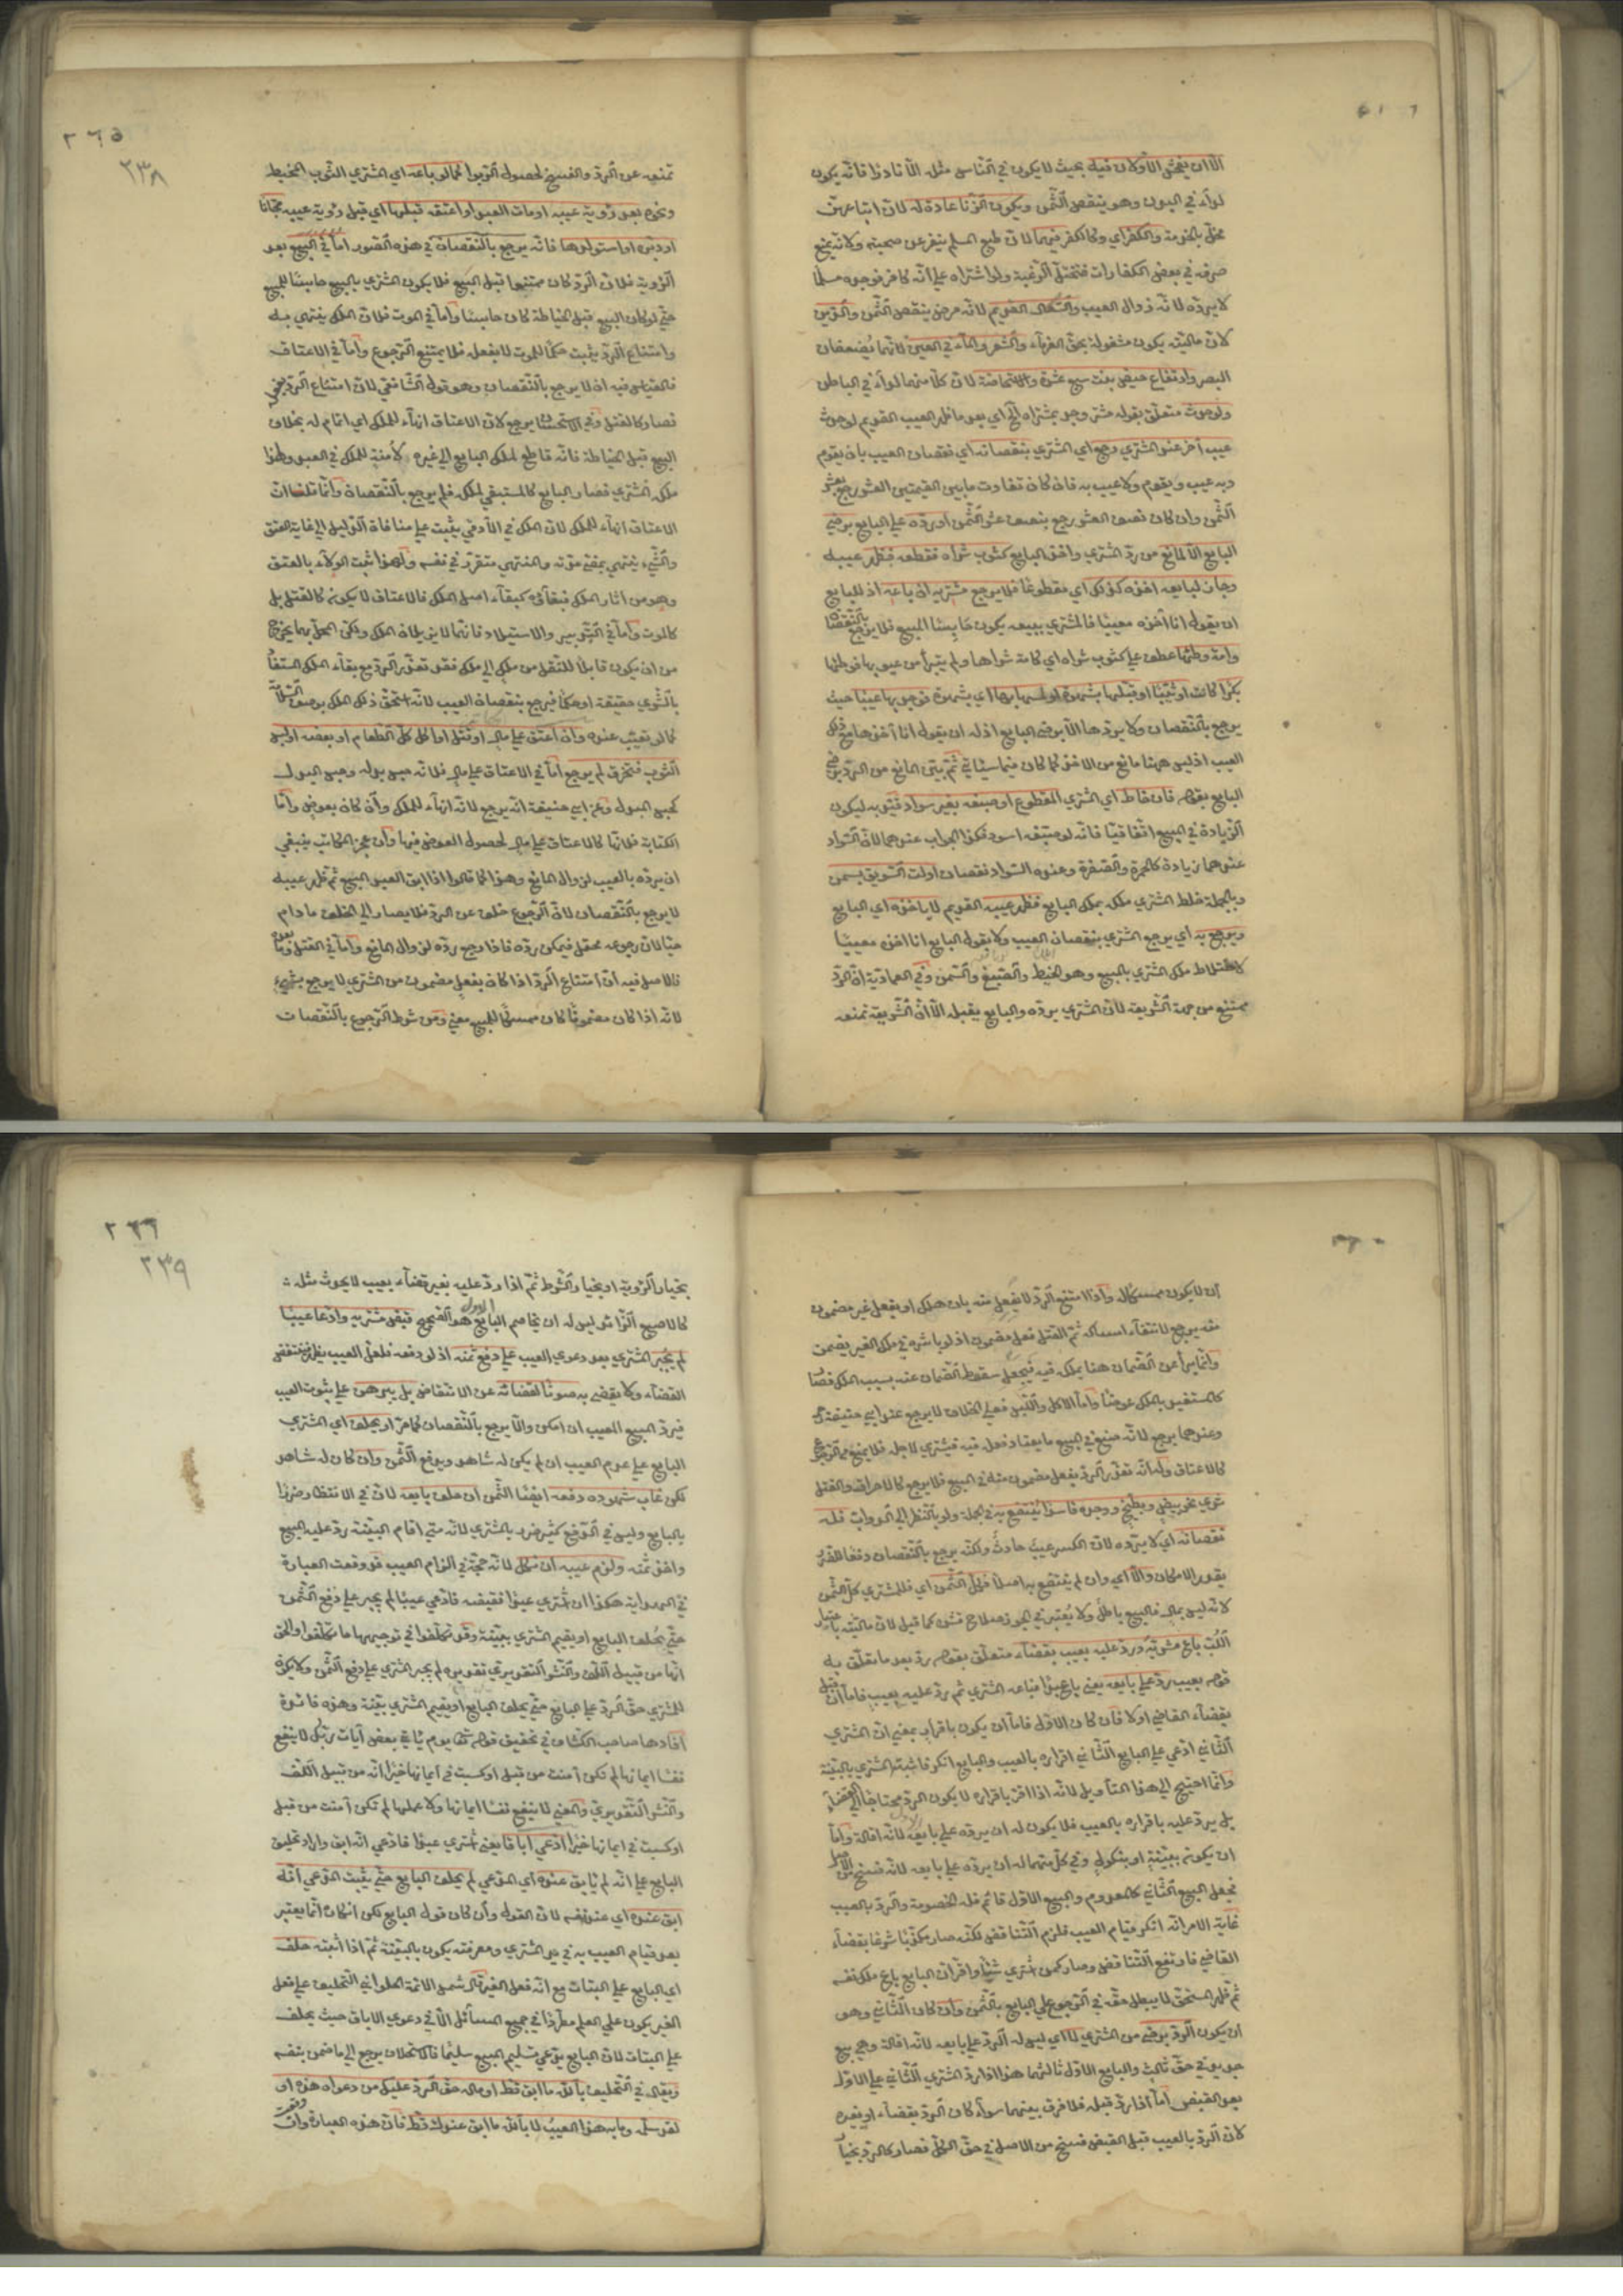 الا ان يفحش الاولان فيه بحيث لا يكون في الناس مثله الا نادرا فانه يكون
لداء في البدن وهو ينقص الثمن ويكون الزنا عادة له لان اتباعهن
مخل بالخدمة والكفر اي وكالكفر فيهما لان طبع المسلم ينفر عن صحبته ولانه يمتنع
صرفه في بعض الكفارات فتختل الرغبة ولو اشتراه على انه كافر فوجده مسلما
لا يرده لانه زوال العيب والسعال القديم لانه مرض ينقص الثمن والدين
لان ماليته يكون مشغولة بحق الغرماء والشعر والماء في العين لانهما يضعفان
البصر وارتفاع حيض بنت سبع عشرة والاستحاضة لان كلا منهما لداء في الباطن
ولو حدث متعلق بقوله مشتر وجد بمشتراه الخ اي بعد ما ظهر العيب القديم لو حدث
عيب آخر عند المشتري رجع اي المشتري بنقصانه اي نقصان العيب بان يقوم
وبه عيب ويقوم ولا عيب به فان كان تفاوت ما بين القيمتين العشر رجع بعشر
الثمن وان كان نصف العشر رجع بنصف عشر الثمن او رده على البايع برضى
البايع الا لمانع من رد المشتري واخذ البايع كثوب شراه فقطعه فظهر عيبه
وجاز لبايعه اخذه كذلك اي مقطوعا فلا يرجع مشتريه ان باعه اذ للبايع
ان يقول انا آخذه معيبا فالمشتري ببيعه يكون حابسا المبيع فلا يرجع بالنقصان
وامة وطئها عطف على كثوب شراه اي كامة شراها ولم يتبرأ من عيوبها فوطئها
بكرا كانت او ثيبا او قبلها بشهوة او لمسها بها اي بشهوة فوجد بها عيبا حيث
يرجع بالنقصان ولا يردها الا برضى البايع اذ له ان يقول انا آخذها مع ذلك
العيب اذ ليس ههنا مانع من الاخذ كما كان فيما سيأتي ثم بين المانع من الرد برضى
البايع بقوله فان خاط اي المشتري المقطوع او صبغه بغير سواد قيد به ليكون
الزيادة في المبيع اتفاقيا فانه لو صبغه اسود فكذا الجواب عندهما لان السواد
عندهما زيادة كالحمرة والصفرة وعنده السواد نقصان او لت السويق بسمن
وبالجملة خلط المشتري ملكه بملك البايع فظهر عيبه القديم لا ياخذه اي البايع
ويرجع به اي يرجع المشتري بنقصان العيب ولا يقول البايع انا آخذه معيبا
لاختلاط ملك المشتري بالمبيع وهو الخيط والصبغ والسمن وفي العمادية ان الرد
ممتنع من جهة الشريعة لان المشتري يرده والبايع يقبله الا ان الشريعة تمنعه
٢٦٥
٢٣٨
تمنعه عن الرد والفسخ لحصول الربوا كما لو باعه اي المشتري الثوب المخيط
ونحوه بعد رؤية عيبه او مات العبد او اعتقه قبلها اي قبل رؤية عيبه مجانا
او دبره او استولدها فانه يرجع بالنقصان في هذه الصور اما في البيع بعد
الرؤية فلان الرد كان ممتنعا قبل البيع فلا يكون المشتري بالبيع حابسا للمبيع
حتى لو كان البيع قبل الخياطة كان حابسا واما في الموت فلان الملك ينتهي به
وامتناع الرد يثبت حكما للموت لا بفعله فلا يمتنع الرجوع واما في الاعتاق
فالقياس فيه ان لا يرجع بالنقصان وهو قول الشافعي لان امتناع الرد بفعله
فصار كالقتل وفي الاستحسان يرجع لان الاعتاق انهاء للملك اي اتمام له بخلاف
البيع قبل الخياطة فانه قاطع لملك البايع الى غيره لا منه للملك في العبد ولهذا
ملكه المشتري فصار البايع كالمستبقي لملكه فلم يرجع بالنقصان وانما قلنا ان
الاعتاق انهاء للملك لان الملك في الآدمي يثبت على منافاة الدليل الى غاية العتق
والشيء ينتهي بمضي مدته والمنتهي متقرر في نفسه ولهذا يثبت الولاء بالعتق
وهو من آثار الملك فبقاؤه كبقاء اصل الملك فالاعتاق لا يكون كالقتل بل
كالموت واما في التدبير والاستيلاد فانهما لا يزيلان الملك ولكن المحل بهما يخرج
من ان يكون قابلا للنقل من ملك الى ملك فقد تعذر الرد مع بقاء الملك المستفاد
بالشري حقيقة او حكما فيرجع بنقصان العيب لانه استحق ذلك الملك بوصف السلامة
كما لو تعيب عنده وان اعتق على مال او قتل او اكل كل الطعام او بعضه او لبس
الثوب فتخرق لم يرجع اما في الاعتاق على مال فلانه حبس بدله وحبس البدل
كحبس المبدل وعن ابي حنيفة انه يرجع لانه انهاء للملك وان كان بعوض واما
الكتابة فلانها كالاعتاق على مال لحصول العوض فيها وان عجز المكاتب ينبغي
ان يرده بالعيب لزوال المانع وهذا كما قالوا اذا ابق العبد المبيع ثم ظهر عيبه
لا يرجع بالنقصان لان الرجوع خلف عن الرد فلا يصار الى الخلف ما دام
حيا لان رجوعه محتمل فيمكن رده فاذا رجع رده لزوال المانع واما في القتل وما بعده
فالاصل فيه ان امتناع الرد اذا كان بفعل مضمون من المشتري لا يرجع بشيء
لانه اذا كان مضمونا كان ممسكا للمبيع معنى ومن شرط الرجوع بالنقصان
ان لا يكون ممسكا له واذا امتنع الرد لا بفعل منه بان هلك او بفعل غير مضمون
منه يرجع لانتفاء امساكه ثم القتل فعل مضمون اذ لو باشره في ملك الغير يضمن
وانما يبرأ عن الضمان هنا بملكه فيه فيجعل سقوط الضمان عنه بسبب الملك فصار
كالمستفيد بالملك عوضا واما الاكل واللبس فعلى الخلاف لا يرجع عند ابي حنيفة
وعندهما يرجع لانه صنع في المبيع ما يعتاد فعله فيه فيشتري لاجله فلا يمنع الرجوع
كالاعتاق وله انه تعذر الرد بفعل مضمون منه في المبيع فلا يرجع كالاحراق والقتل
شرى نحو بيض وبطيخ ووجده فاسدا ينتفع به في الجملة ولو بالنظر الى الدواب فله
نقصانه اي لا يرده لان الكسر عيب حادث ولكنه يرجع بالنقصان دفعا للضرر
بقدر الامكان والا اي وان لم ينتفع به اصلا فكل الثمن اي فللمشتري كل الثمن
لانه ليس بمال فالبيع باطل ولا يعتبر في الجوز صلاح قشره كما قيل لان ماليته باعتبار
اللب باع مشريه ورد عليه بعيب بقضاء متعلق بقوله رد بعد ما تعلق به
قوله بعيب رد على بايعه يعني باع عبدا فباعه المشتري ثم رد عليه بعيب فاما ان قبل
بقضاء القاضي او لا فان كان الاول فاما ان يكون باقرار بمعنى ان المشتري
الثاني ادعى على البايع الثاني اقراره بالعيب والبايع انكر فاثبته المشتري بالبينة
وانما احتيج الى هذا التأويل لانه اذا اقر باقراره لا يكون الرد محتاجا الى القضاء
بل يرد عليه باقراره بالعيب فلا يكون له ان يرده على بايعه الاول لانه اقالة واما
ان يكون ببينة او بنكول وفي كل منهما له ان يرده على بايعه لانه فسخ من الاصل
فجعل البيع الثاني كالمعدوم والبيع الاول قائم فله الخصومة والرد بالعيب
غاية الامر انه انكر قيام العيب فلزم التناقض لكنه صار مكذبا شرعا بقضاء
القاضي فارتفع التناقض وصار كمن اشترى شيئا واقر ان البايع باع ملك نفسه
ثم ظهر المستحق لا يبطل حقه في الرجوع على البايع بالثمن وان كان الثاني وهو
ان يكون الرد برضى من المشتري لا اي ليس له الرد على بايعه لانه اقالة وهي بيع
جديد في حق ثالث والبايع الاول ثالثهما هذا اذا رد المشتري الثاني على الاول
بعد القبض اما اذا رد قبله فلا فرق بينهما سواء كان الرد بقضاء او بغيره
لان الرد بالعيب قبل القبض فسخ من الاصل في حق الكل فصار كالرد بخيار
٢٦٦
٢٣٩
بخيار الرؤية او بخيار الشرط ثم اذا رد عليه بغير قضاء بعيب لا يحدث مثله
كالاصبع الزائد ليس له ان يخاصم البايع الاول هو الصحيح قبض مشتريه وادعى عيبا
لم يجبر المشتري بعد دعوى العيب على دفع ثمنه اذ لو دفعه فلعل العيب يظهر فينتقض
القضاء ولا يقضي به صونا لقضائه عن الانتقاض بل يبرهن على ثبوت العيب
فيرد المبيع المعيب ان امكن والا يرجع بالنقصان كما مر او يحلف اي المشتري
البايع على عدم العيب ان لم يكن له شاهد ويدفع الثمن وان كان له شاهد
لكن غاب شهوده دفعه ايضا الثمن ان حلف بايعه لان في الانتظار ضررا
بالبايع وليس في الدفع كثير ضرر بالمشتري لانه متى اقام البينة رد عليه المبيع
واخذ ثمنه ولزم عيبه ان نكل لانه حجة في الزام العيب قد وقعت العبارة
في الهداية هكذا ان اشترى عبدا فقبضه فادعى عيبا لم يجبر على دفع الثمن
حتى يحلف البايع او يقيم المشتري ببينة وقد تكلفوا في توجيهها ما تكلفوا والحق
انها من قبيل اللف والنشر التقديري تقديره لم يجبر المشتري على دفع الثمن ولا يكون
للمشتري حق الرد على البايع حتى يحلف البايع او يقيم المشتري بينة وهذه فائدة
افادها صاحب الكشاف في تحقيق قوله تعالى يوم يأتي بعض آيات ربك لا ينفع
نفسا ايمانها لم تكن آمنت من قبل او كسبت في ايمانها خيرا انه من قبيل اللف
والنشر التقديري والمعنى لا ينفع نفسا ايمانها ولا عملها لم تكن آمنت من قبل
او كسبت في ايمانها خيرا ادعى اباقا يعني اشترى عبدا فادعى انه ابق واراد تحليف
البايع على انه لم يأبق عنده اي المدعي لم يحلف البايع حتى يثبت المدعي انه
ابق عنده اي عند نفسه لان القول وان كان قول البايع لكن انكاره انما يعتبر
بعد قيام العيب به في يد المشتري ومعرفته يكون بالبينة ثم اذا اثبته حلف
اي البايع على البتات مع انه فعل الغير قال شمس الائمة الحلواني التحليف على فعل
الغير يكون على العلم مطردا في جميع المسائل الا في دعوى الاباق حيث يحلف
على البتات لان البايع يدعي تسليم المبيع سليما فالاستحلاف يرجع الى ما ضمن بنفسه
ويقال في التحليف بالله ما ابق قط او ماله حق الرد عليك من دعواه هذه او
لقد سلمه وما به هذا العيب لا بالله ما ابق عندك قط فان هذه العبارة وان وقعت